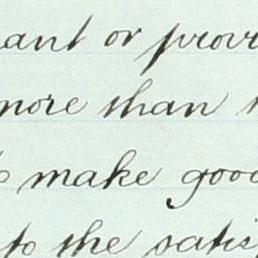 ant or prov
more than
make good
to the satis